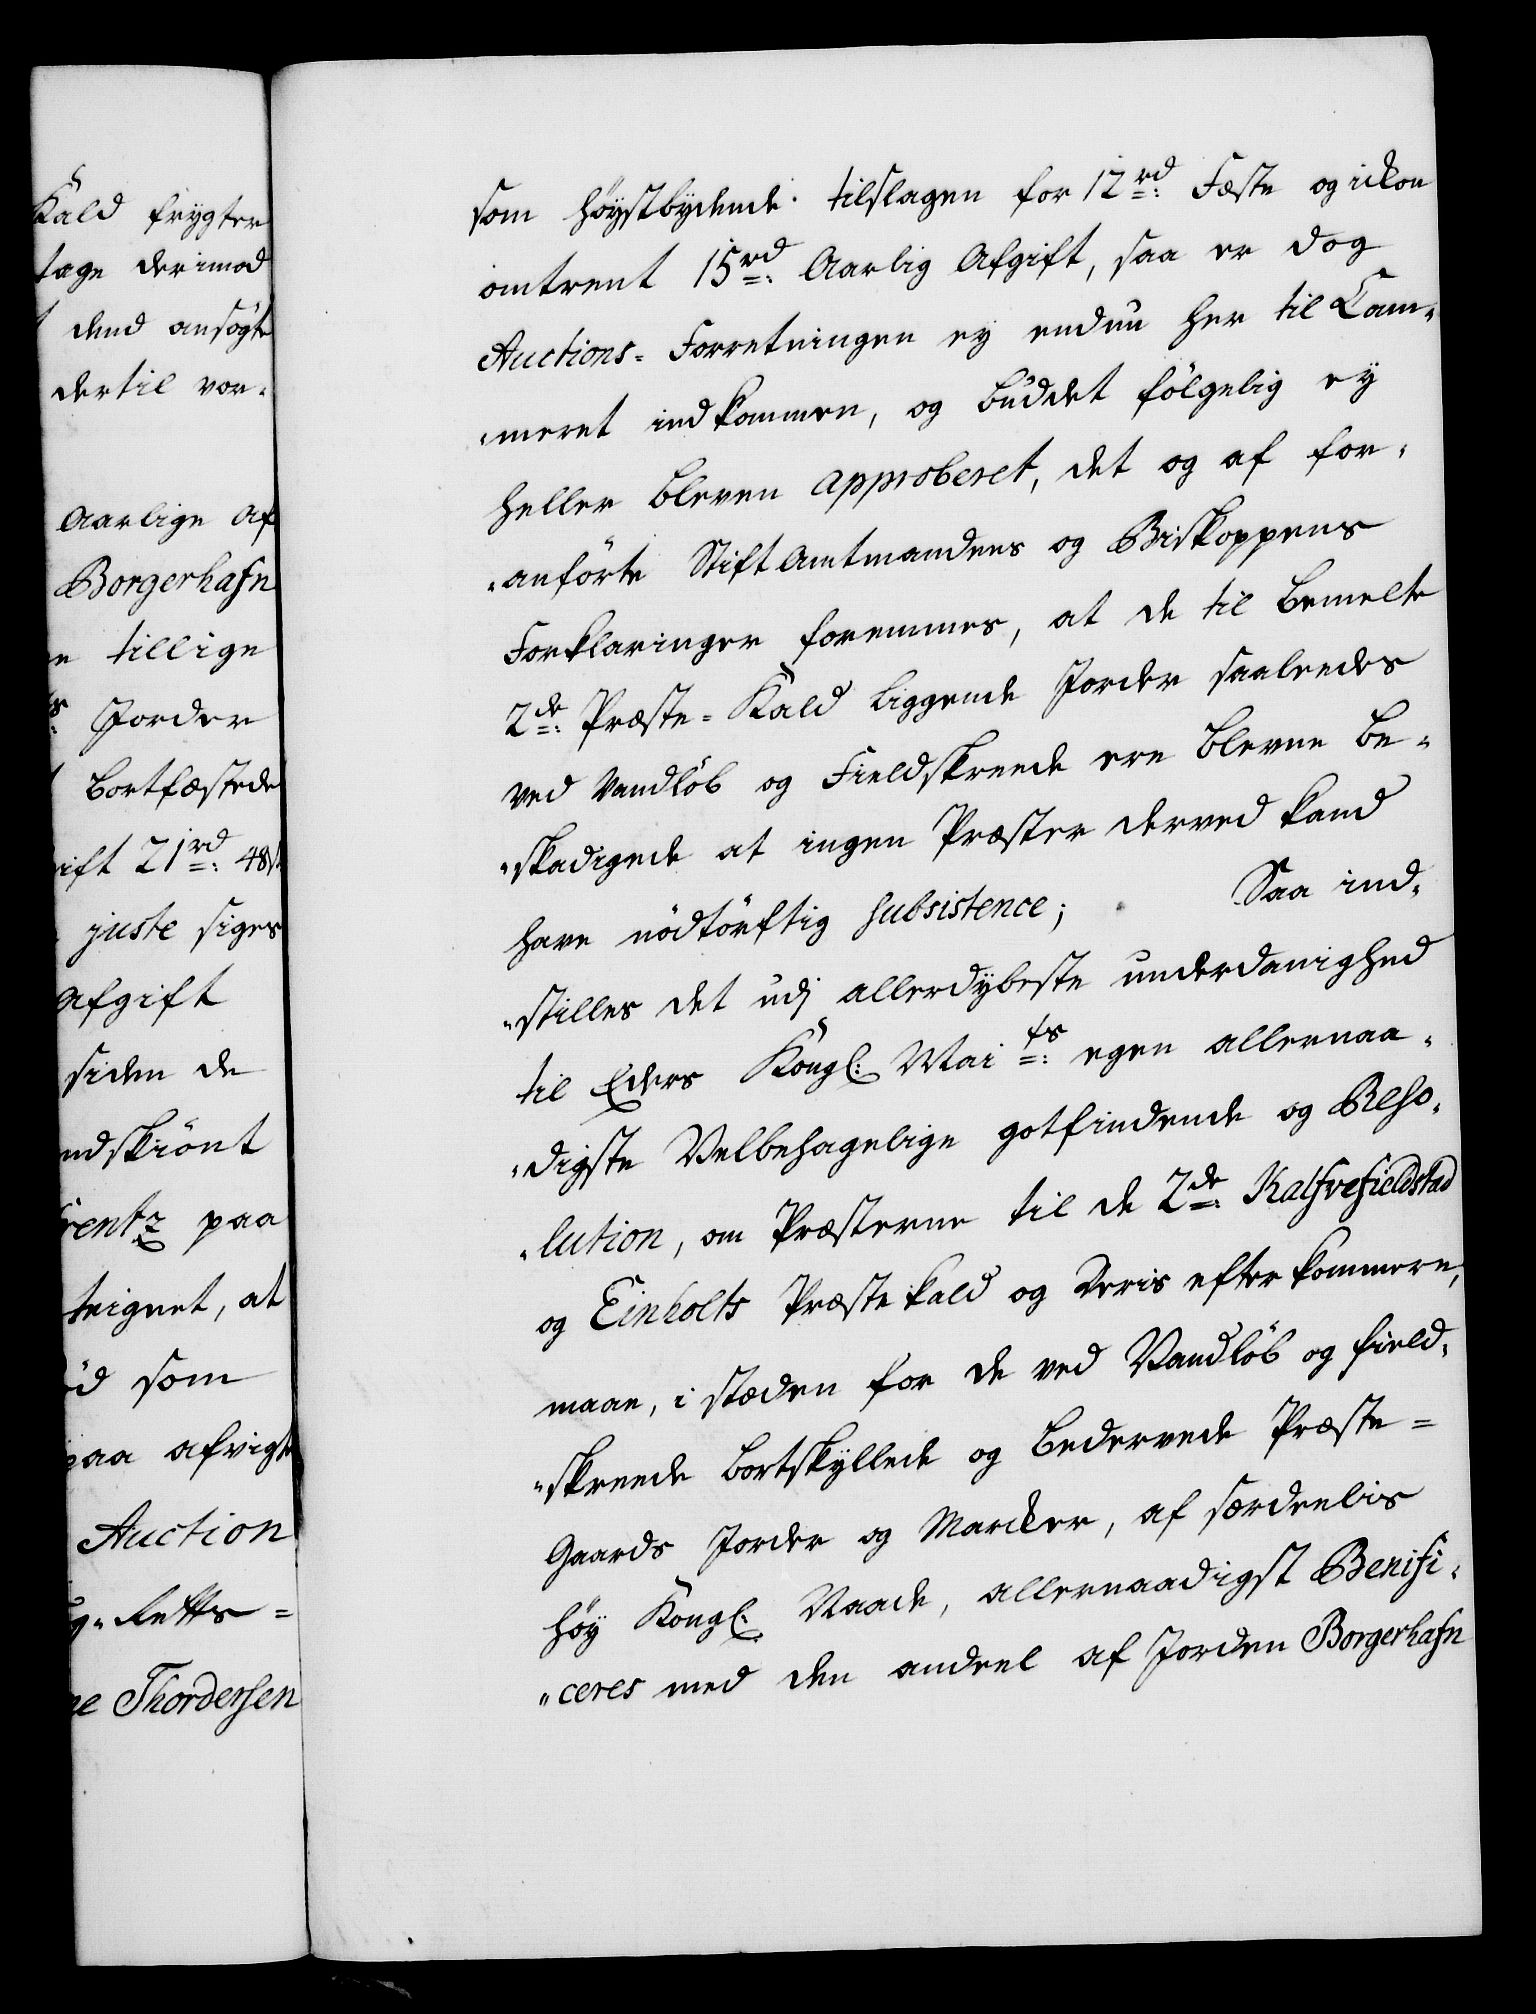 Kald frygter
tage derimod
dend ansøgte
dertil vor-
Aarlige Af
Borgerhafn
tillige
Jorder
bortfæstede
ift 21 rd: 48 s
juste siges
Afgift
siden de
ndskiönt
rentz paa
teignet, at
som
paa afvigte
Auction
Retts=
ne Thordersen
som høystbydende tilslagen for 12 rd: Fæste og ickon
omtrent 15 rd: Aarlig Afgift, saa er dog
Auctions= Forretningen ey endnu her til Cam-
-meret indkommen, og buddet følgelig ey
heller bleven approberet, det og af for-
-anførte Stiftamtmandens og Biskoppens
Forklaringer fornemmes, at de til bemelte
2de: Præste= Kald liggende Jorder saaleedes
ved Vandløb og Fieldskreede ere blevne be-
-skadigede at ingen Præster derved kand
have nødtørftig subsistence; Saa ind-
-stilles det udj allerdybeste underdanighed
til Eders Kongl: Mai ts: egen allernaa-
-digste Velbehagelige gotfindende og Reso-
-lution, om Præsterne til de 2de: Kalfvefieldstad
og Einholts Præstekald og deris efterkommere,
maae, i stæden for de ved Vandløb og field-
-skreede bortskyllede og bedervede Præste=
Gaards Jorder og Marcker, af særdeelis
høy Kongl: Naade, allernaadigst Benifi-
-ceres med den andeel af Jorden Borgerhafn